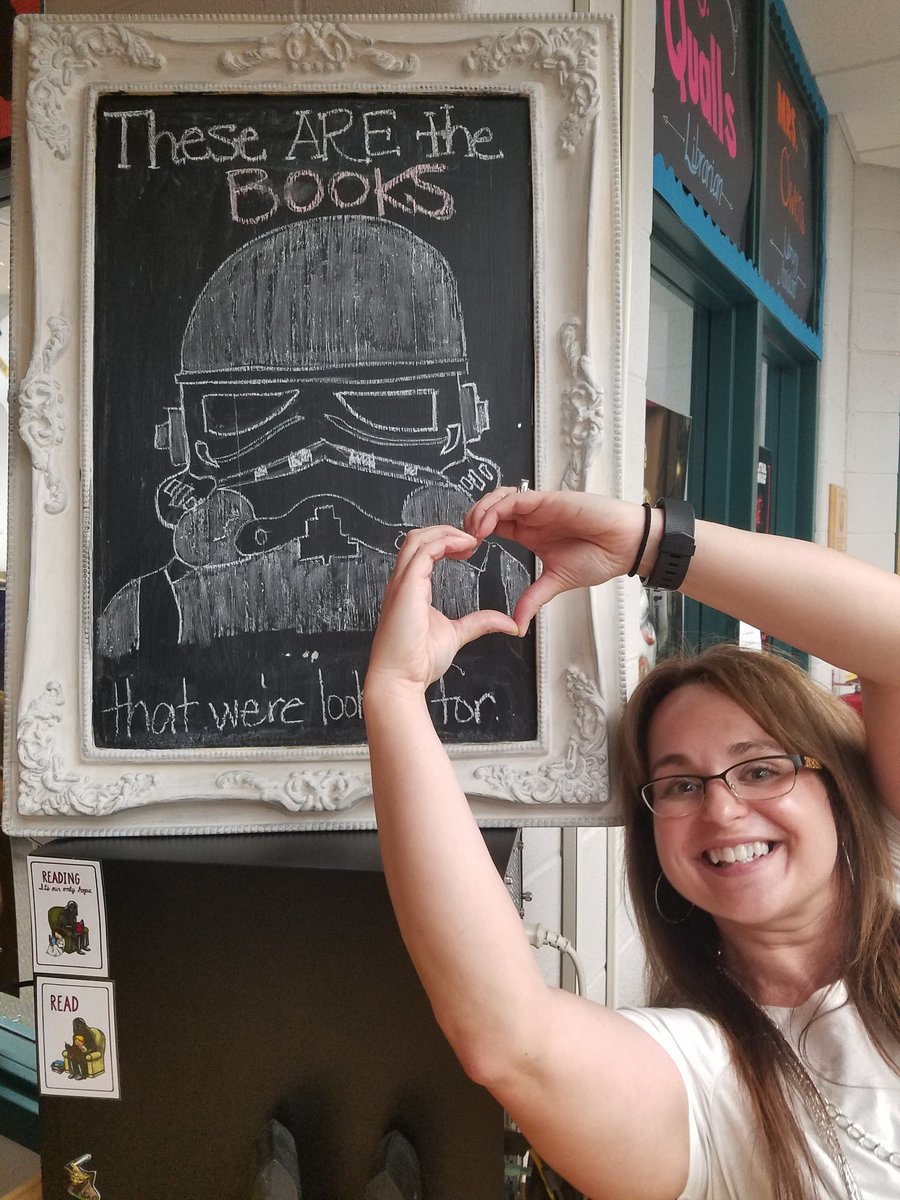 These ARE the
BOOKS
that we're loo for.
Qualls
Librarian
MRS
Owens
Library
READING
It's our only Hope
READ